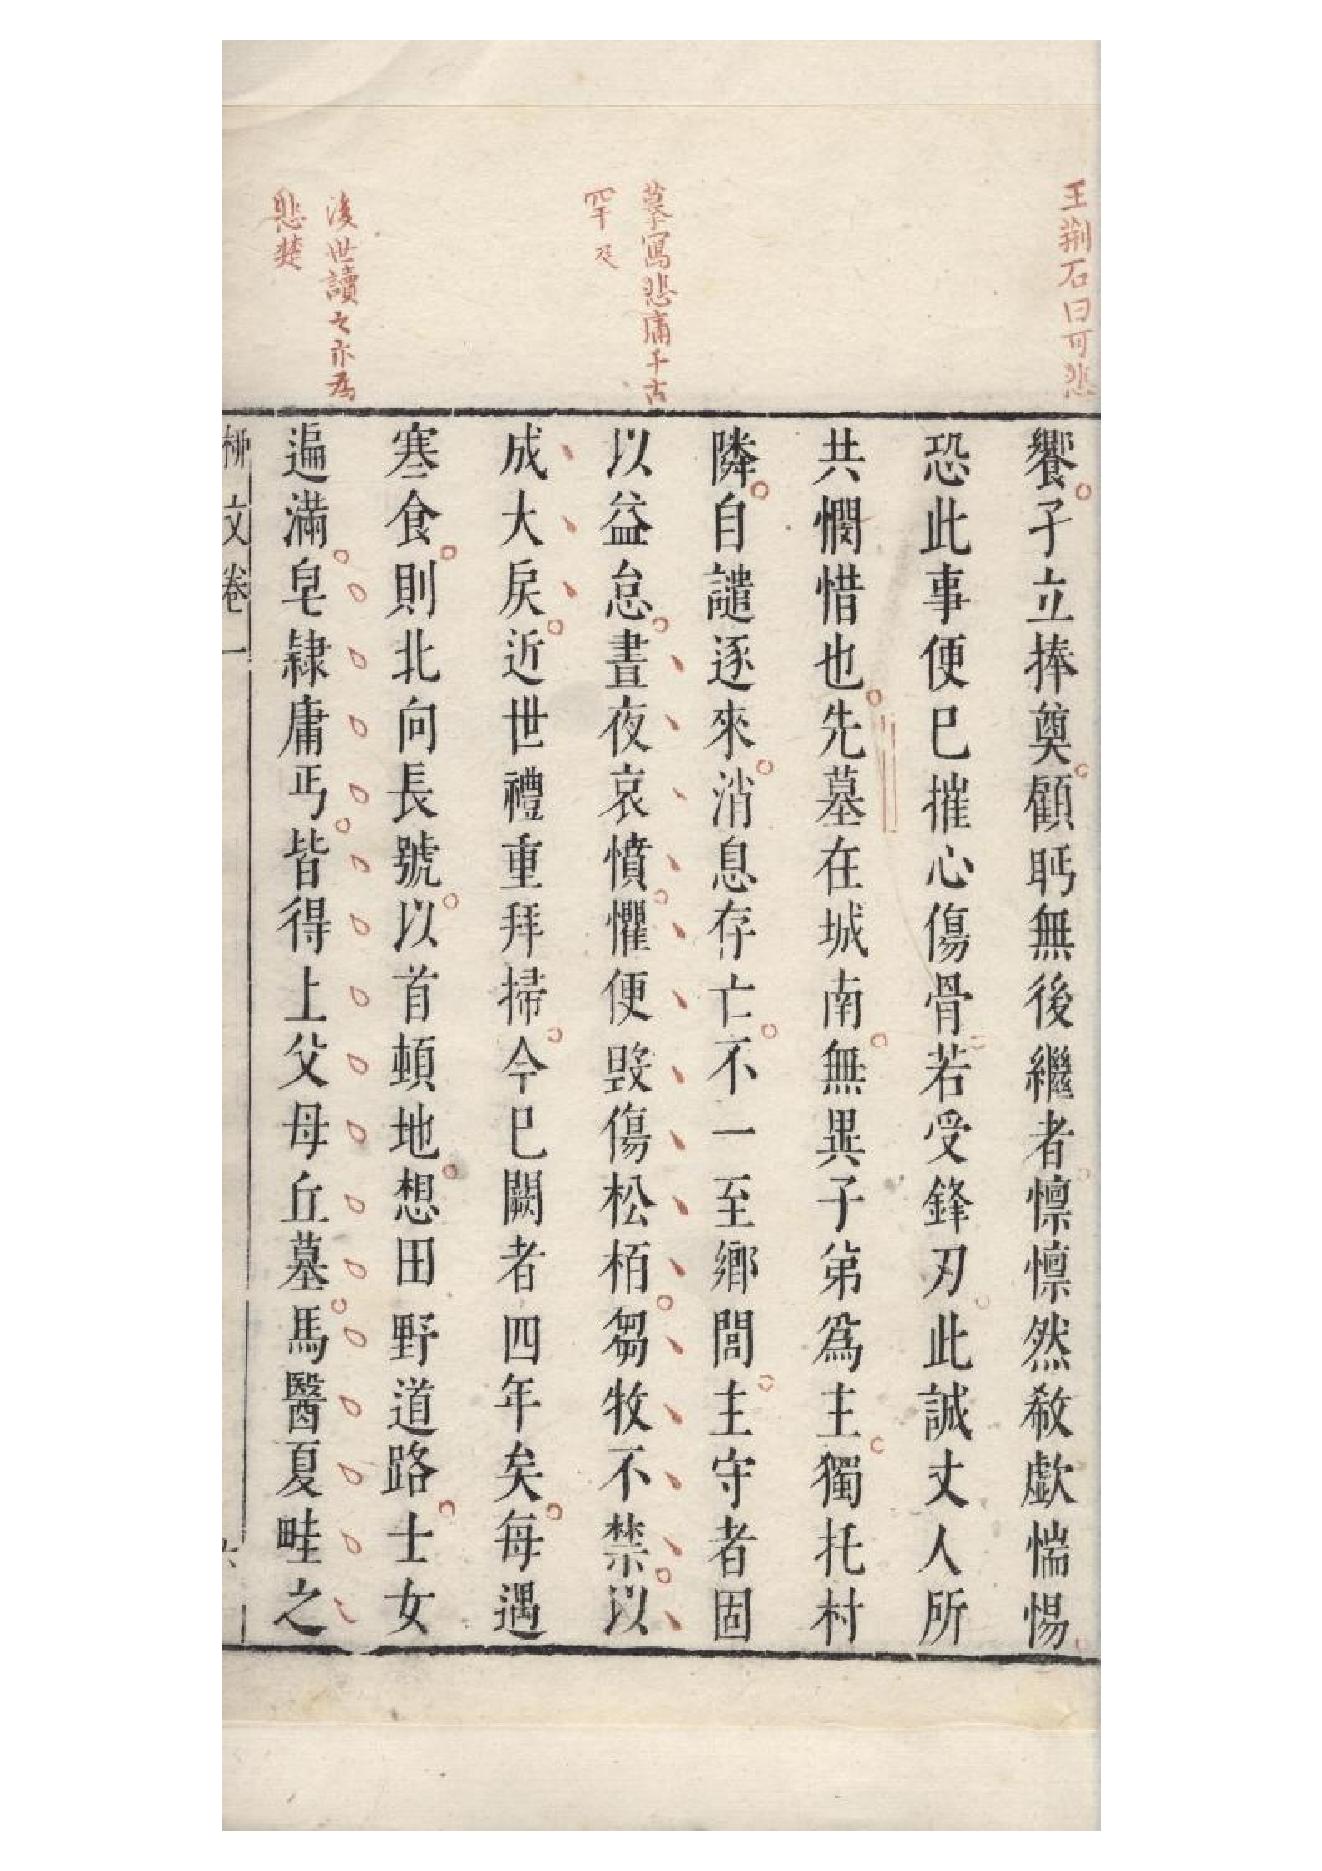 王荆石曰可悲
饗孑立捧奠顧眄無後繼者懍懍然欷歔惴惕
恐此事便已摧心傷骨若受鋒刃此誠丈人所
共憫惜也先墓在城南無異子弟爲主獨托村
隣自譴逐來消息存亡不一至鄉閭主守者固
摹寫悲痛千古
罕及
以益怠晝夜哀憤懼便毀傷松栢芻牧不禁以
成大戾近世禮重拜掃今已闕者四年矣每遇
後世讀之亦爲
悲楚
寒食則北向長號以首頓地想田野道路士女
遍滿皂隸庸丐皆得上父母丘墓馬醫夏畦之
柳文卷一
六